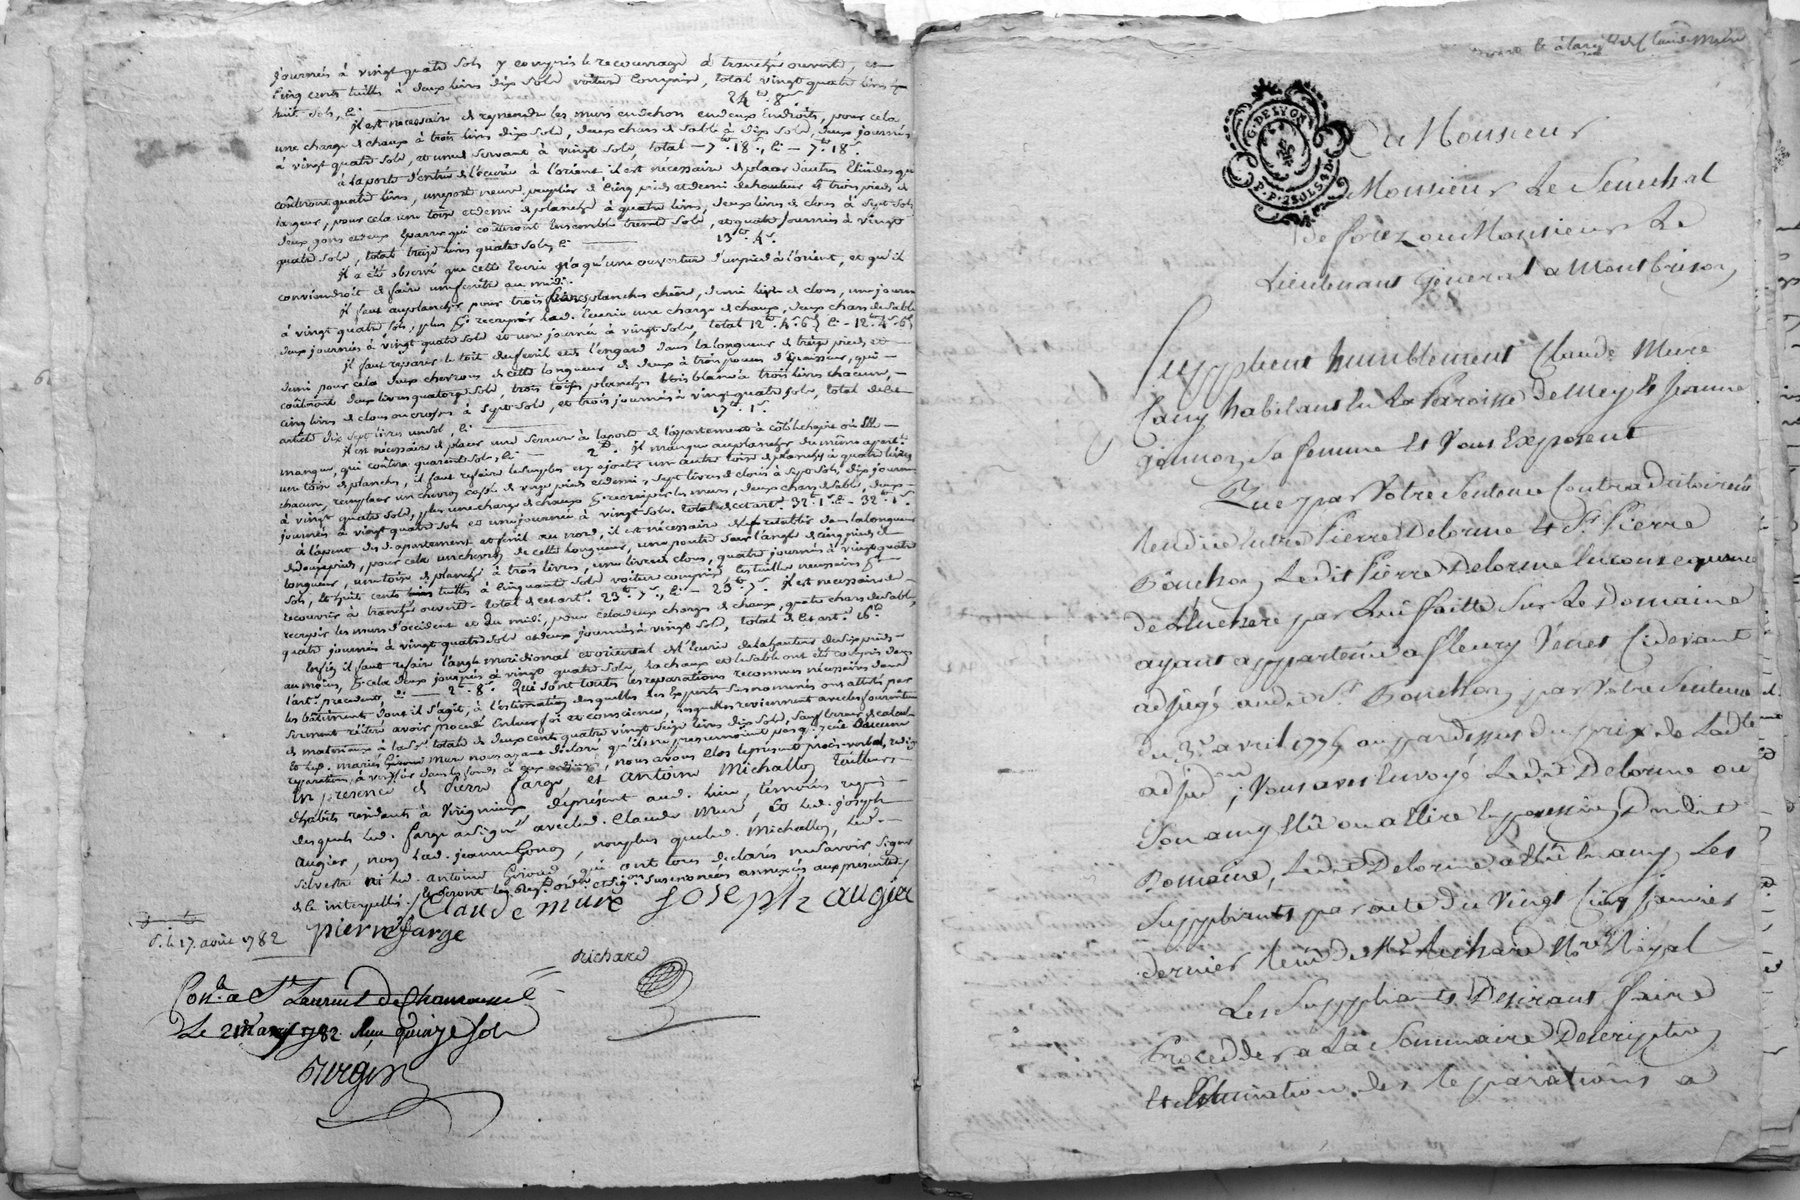 journées à vingt quatre sols y compris le recouvrage à tranchée ouverte, et
cinq cents tuilles à deux livres dix sols voiture comprise, total vingt quatre livres
huit sols, cy 24tt 8s
il est necessaire de reprendre les murs en dehors en deux endroits, pour cela
une charge de chaux à trois livres dix sols, deux chars de sable à dix sols, deux journées
à vingt quatre sols, et une de servant à vingt sols, total - 7tt 18s, cy - 7tt 18s
à la porte d'entrée de l'écurie à l'orient il est nécessaire de placer d'autres
coûteront quatre livres, une porte neuve peuplier de cinq pieds et demi de hauteur et trois pieds de
largeur, pour cela une toise et demi de planche à quatre livres, deux livres de clous à sept sols
deux gons et deux éparres qui coûteront ensemble trente sols, et quatre journées à vingt
quatre sols, total treize livres quatre sols, cy 13tt 4s
il a été observé que cette écurie n'a qu'une ouverture d'un pied à l'orient, et qu'il
conviendroit de faire une fenêtre au midi.
il faut au plancher pour trois livres planches chêne, demi livre de clous, une journée
à vingt quatre sols, plus pr recrepir lad. écurie une charge de chaux, deux chars de sable
deux journées à vingt quatre sols et une journée à vingt sols, total 12tt 4s 6d cy - 12tt 4s 6d
il faut reparer le toit du fenil et de l'engard dans la longueur de treize pieds et
demi pour cela deux chevrons de cette longueur de deux à trois pouces d'épaisseur, qui
coûteront deux livres quatorze sols, trois toises planches bois blanc à trois livres chacune,
cinq livres de clous ou crosses à sept sols, et trois journées à vingt quatre sols, total de cet
article dix sept livres un sol, cy 17tt 1s
il est nécessaire de placer une serrure à la porte de l'appartement à côté le chapit où elle
manque, qui coûtera quarante sols, cy - 2tt. il manque au plancher du même apart.t
une toise de planches, il faut refaire le surplus en y ajoutant une autre toise de planches à quatre livres
chacune, remplacer un chevron cassé de vingt pieds et demi, sept livres de clous à sept sols, dix journées
à vingt quatre sols, plus une charge de chaux pr recrepir les murs, deux chars de sable, deux
journées à vingt quatre sols et une journée à vingt sols. total de cet art. 32tt 1s cy - 32tt 1s
à l'apent des d. apartement et fenil au nord, il est nécessaire de le retablir dans la longueur
de douze pieds, pour cela un chevron de cette longueur, une poutre sous l'angle de cinq pieds de
longueur, une toise de planche à trois livres, une livre de clous, quatre journées à vingt quatre
sols, et huit cents tuilles à cinquante sols voiture comprise les tuilles necessaires pr
recouvrir à tranchée ouverte. total de cet art. 23tt 7s, cy - 23tt 7s. il est necessaire de
recrepir les murs d'occident et du midi, pour cela deux charges de chaux, quatre chars de sable,
quatre journées à vingt quatre sols et deux journées à vingt sols, total de cet art. 16tt
enfin il faut refaire l'angle meridional et oriental de l'écurie de la hauteur de six pieds
au moins, pr cela deux journées à vingt quatre sols, la chaux et le sable ont été compris dans
l'art. precedent, cy - 2tt 8s. Qui sont toutes les reparations reconnues nécessaires dans
les bâtiments dont il s'agit, à l'estimation desquelles les experts susnommés ont attesté par
serment réitéré avoir procedé en leur foi et conscience, lesquelles reviennent avec les fournitures
de materiaux à la so. totale de deux cents quatre vingt seize livres dix sols, sauf erreur de calcul
et lesd. mariés Mure nous ayant déclaré qu'ils ne presumoient pas qu'il y eut aucune
reparation à vérifier dans les fonds, nous avons clos le présent procès-verbal, rédigé
en présence de pierre farge et antoine Michallon tailleurs
d'habits residants à Virigneux de présent aud. lieu, témoins requis
desquels led. farge a signé avec led. Claude Mure, et led. joseph
augier, non lad. jeanne Gonon, non plus que led. Michallon, led.
silvestre ni led. antoine Giroud qui ont tous declarés ne savoir signer
de ce interpellés.
Claude mure joseph augier
pierre farge
d. le 17. août 1782
Richard
Con.lé a St Laurent de Chamousset
Le 21 1782 Reçu quinze sols
G. DE LYON
P.P. 2 SOLS 4 D.
A Monsieur
Monsieur Le Senechal
De forez ou Monsieur Le
Lieutenant général a Montbrison
Supplient humblement Claude Mure
Lainy habitant en La Paroisse de Meys et Jeanne
gonnon sa femme Et Vous Exposent
Que par Votre Sentence Contradictoirement
rendue Entre Pierre Delorme Et Sr Pierre
Bouchon, Ledit Pierre Delorme En consequence
de L'Enchere par Lui faitte Sur Le Domaine
ayant appartenu a fleury Venet Cidevant
adjugé audit Sr Bouchon par Votre Sentence
du 3e avril 1774 au par dessus du prix de Ladte
adjudon; Vous avés Envoyé Ledit Delorme ou
Son amy Elû ou a Elire En possession Dudit
Domaine, Ledit Delorme a Elû En amy Les
Suppliants par acte du Vingt Cinq Janvier
dernier reçu de Me Richard Nre Royal
Les Suppliants Desirant faire
Proceder a La Sommaire Description
Et Estimation des reparations a